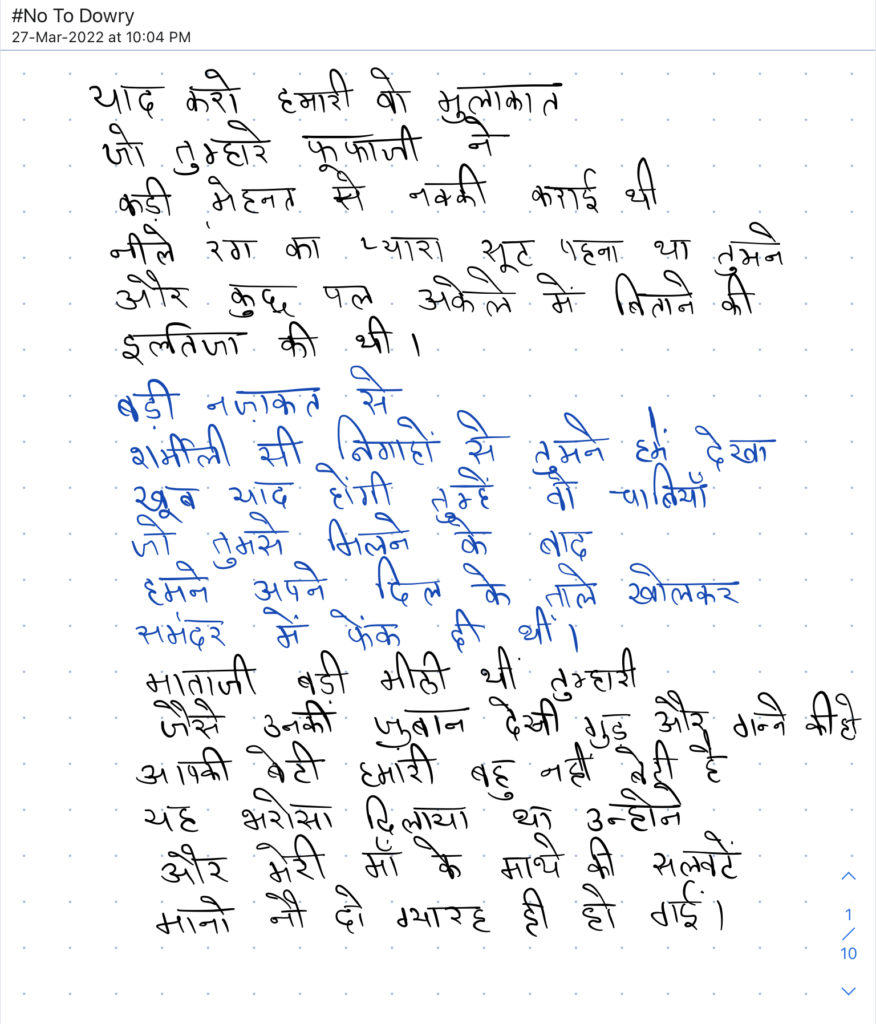 #No To Dowry
27-Mar-2022 at 10:04 PM
याद करो हमारी वो मुलाकात
जो तुम्हारे फूफाजी ने
कड़ी मेहनत से नक्की कराई थी
नीले रंग का प्यारा सूट पहना था तुमने
और कुछ पल अकेले में बिताने की
इल्तिजा की थी ।
बड़ी नज़ाकत से
शर्मीली सी निगाहों से तुमने हमें देखा
खूब याद होंगी तुम्हें वो चाबियाँ
जो तुमसे मिलने के बाद
हमने अपने दिल के ताले खोलकर
समंदर में फेंक दी थीं ।
माताजी बड़ी मीठी थीं तुम्हारी
जैसे उनकी जुबान देसी गुड़ और गन्ने की हो
आपकी बेटी हमारी बहु नहीं बेटी है
यह भरोसा दिलाया था उन्होंने
और मेरी माँ के माथे की सलवटें
मानो नौ दो ग्यारह ही हो गईं ।
1
/
10